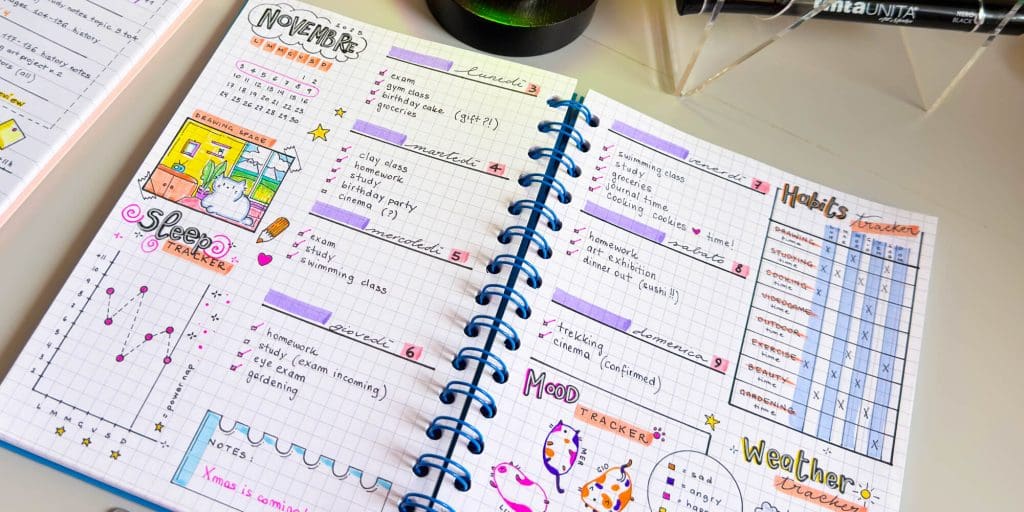 study notes topic 3 to 4
117-136 history
history notes
art project n.2
(all)
review
NOVEMBRE
2025
L M M G V S D
1 2
3 4 5 6 7 8 9
10 11 12 13 14 15 16
17 18 19 20 21 22 23
24 25 26 27 28 29 30
DRAWING SPACE
Sleep
TRACKER
+11
L M M G V S D
= power nap
NOTES:
Xmas is coming
lunedì 3
exam
gym class
birthday cake (gift?!)
groceries
martedì 4
clay class
homework
study
birthday party
cinema (?)
mercoledì 5
exam
study
swimming class
giovedì 6
homework
study (exam incoming)
eye exam
gardening
venerdì 7
swimming class
study
groceries
journal time
cooking cookies ♥ time!
sabato 8
homework
art exhibition
dinner out (sushi!!)
domenica 9
trekking
cinema (confirmed)
MOOD
TRACKER
MER
GIO
= sad
= angry
Habits
tracker
DRAWING
time
STUDYING
time
COOKING
time
VIDEOGAME
time
OUTDOOR
time
EXERCISE
time
BEAUTY
time
GARDENING
time
Weather
tracker
tintaUNITA
NERO
BLACK